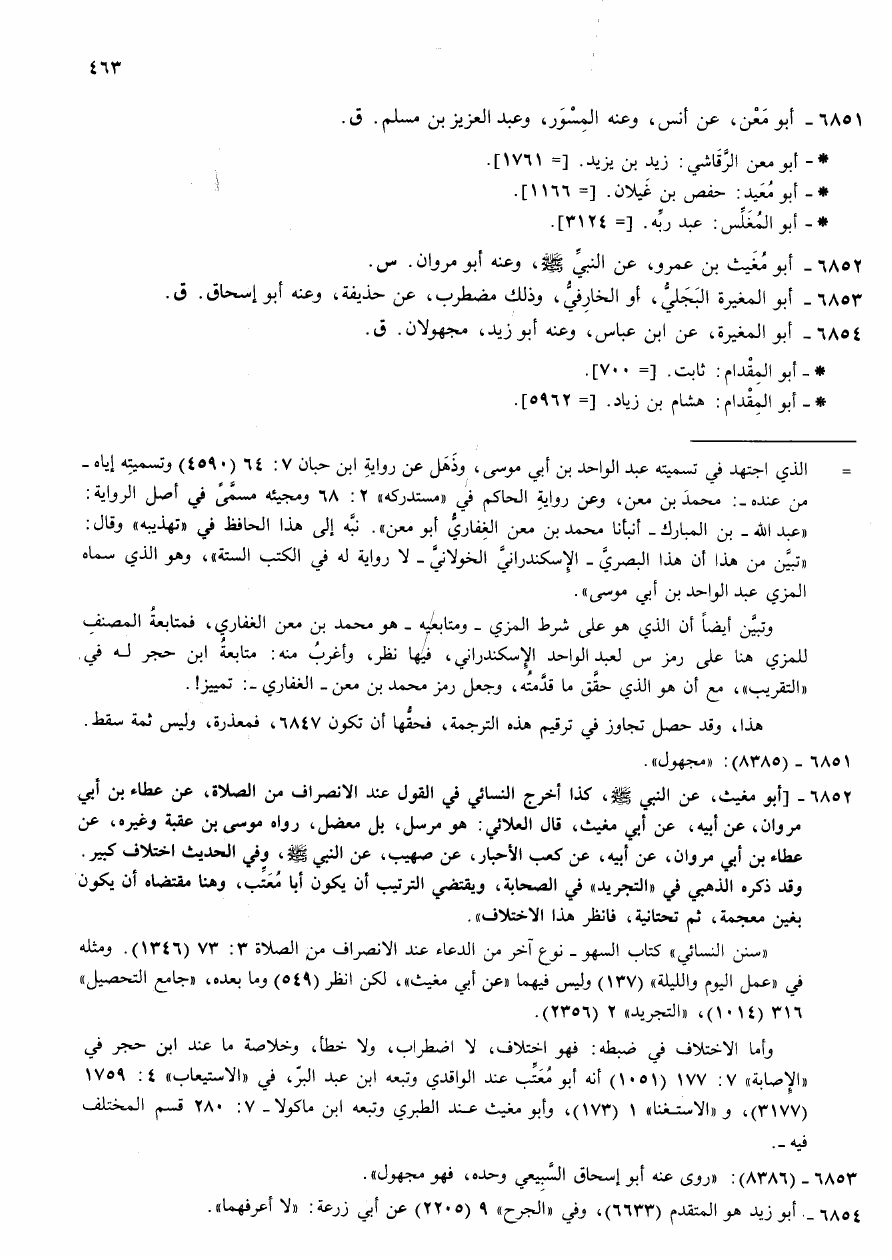 ٤٦٣
٦٨٥١ ـ أبو مَعْن، عن أنس، وعنه المِسْوَر، وعبد العزيز بن مسلم. ق.
* ـ أبو معن الرَّقَاشي: زيد بن يزيد. [= ١٧٦١].
* ـ أبو مُعَيد: حفص بن غَيلان. [= ١١٦٦].
* ـ أبو المُغَلِّس: عبد ربِّه. [= ٣١٢٤].
٦٨٥٢ ـ أبو مُغَيث بن عمرو، عن النبيِّ ﷺ، وعنه أبو مروان. س.
٦٨٥٣ ـ أبو المغيرة البَجَليُّ، أو الخارِفيُّ، وذلك مضطرب، عن حذيفة، وعنه أبو إسحاق. ق.
٦٨٥٤ ـ أبو المغيرة، عن ابن عباس، وعنه أبو زيد، مجهولان. ق.
* ـ أبو المِقْدام: ثابت. [= ٧٠٠].
* ـ أبو المِقْدام: هشام بن زياد. [= ٥٩٦٢].
= الذي اجتهد في تسميته عبد الواحد بن أبي موسى، وذَهَل عن روايةِ ابن حبان ٧: ٦٤ (٤٥٩٠) وتسميتِه إياه ـ
من عنده ـ: محمدَ بن معن، وعن روايةِ الحاكم في «مستدركه» ٢: ٦٨ ومجيئه مسمَّىً في أصل الرواية:
«عبد الله ـ بن المبارك ـ أنبأنا محمد بن معن الغِفاريُّ أبو معن». نبَّه إلى هذا الحافظ في «تهذيبه» وقال:
«تبيَّن من هذا أن هذا البصريَّ ـ الإسكندرانيَّ الخولانيَّ ـ لا رواية له في الكتب الستة»، وهو الذي سماه
المزي عبد الواحد بن أبي موسى».
وتبيَّن أيضاً أن الذي هو على شرط المزي ـ ومتابعيه ـ هو محمد بن معن الغفاري، فمتابعةُ المصنفِ
للمزي هنا على رمز س لعبد الواحد الإسكندراني، فيها نظر، وأغربُ منه: متابعةُ ابن حجر لـه في
«التقريب»، مع أن هو الذي حقَّق ما قدَّمتُه، وجعل رمز محمد بن معن ـ الغفاري ـ: تمييز!.
هذا، وقد حصل تجاوز في ترقيم هذه الترجمة، فحقُّها أن تكون ٦٨٤٧، فمعذرة، وليس ثمة سقط.
٦٨٥١ ـ (٨٣٨٥): «مجهول».
٦٨٥٢ ـ [أبو مغيث، عن النبي ﷺ، كذا أخرج النسائي في القول عند الانصراف من الصلاة، عن عطاء بن أبي
مروان، عن أبيه، عن أبي مغيث، قال العلائي: هو مرسل، بل معضل، رواه موسى بن عقبة وغيره، عن
عطاء بن أبي مروان، عن أبيه، عن كعب الأحبار، عن صهيب، عن النبي ﷺ، وفي الحديث اختلاف كبير.
وقد ذكره الذهبي في «التجريد» في الصحابة، ويقتضي الترتيب أن يكون أبا مُعَتِّب، وهنا مقتضاه أن يكون
بغين معجمة، ثم تحتانية، فانظر هذا الاختلاف».
«سنن النسائي» كتاب السهو ـ نوع آخر من الدعاء عند الانصراف من الصلاة ٣: ٧٣ (١٣٤٦). ومثله
في «عمل اليوم والليلة» (١٣٧) وليس فيهما «عن أبي مغيث»، لكن انظر (٥٤٩) وما بعده، «جامع التحصيل»
٣١٦ (١٠١٤)، «التجريد» ٢ (٢٣٥٦).
وأما الاختلاف في ضبطه: فهو اختلاف، لا اضطراب، ولا خطأ، وخلاصة ما عند ابن حجر في
«الإصابة» ٧: ١٧٧ (١٠٥١) أنه أبو مُعَتِّب عند الواقدي وتبعه ابن عبد البرّ، في «الاستيعاب» ٤: ١٧٥٩
(٣١٧٧)، و «الاستـغنا» ١ (١٧٣)، وأبو مغيث عنـد الطبري وتبعه ابن ماكولا ـ ٧: ٢٨٠ قسم المختلف
فيه ـ.
٦٨٥٣ ـ (٨٣٨٦): «روى عنه أبو إسحاق السَّبِيعي وحده، فهو مجهول».
٦٨٥٤ ـ أبو زيد هو المتقدم (٦٦٣٣)، وفي «الجرح» ٩ (٢٢٠٥) عن أبي زرعة: «لا أعرفهما».